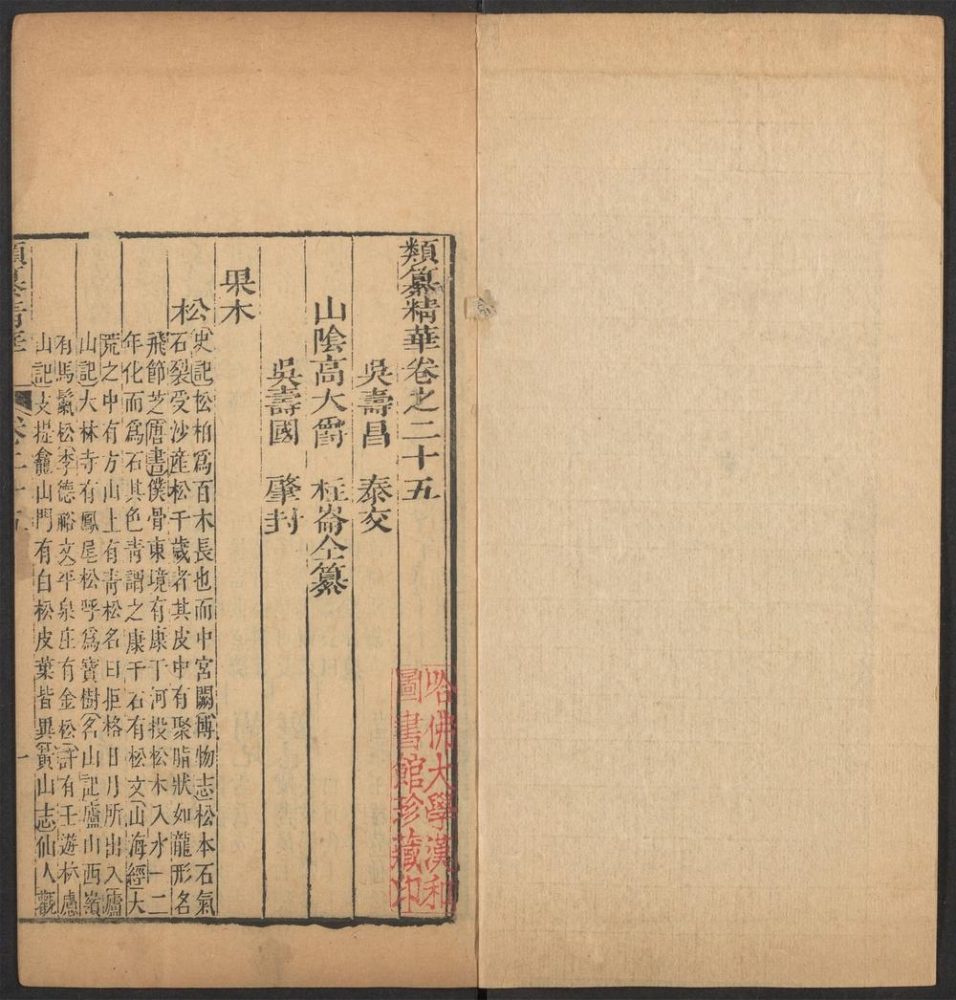 類纂精華卷之二十五
吳壽昌 泰交
山陰高大爵 柱崙仝纂
吳壽國 肇封
果木
松
史記松柏爲百木長也而中宮闕博物志松本石氣
石裂受沙產松千歲者其皮中有聚脂狀如龍形名
飛節芝唐書僕骨東境有康干河投松木入水一二
年化而爲石其色青謂之康干石有松文山海經大
荒之中有方山上有青松名曰拒格日月所出入廬
山記大林寺有鳳尾松呼爲寶樹名山記廬山西嶺
有馬鬣松李德裕文平泉庄有金松許有壬遊林慮
山記支提龕山門有白松皮葉皆異黃山志仙人觀
類纂精華 卷二十五 一
哈佛大學漢和
圖書館珍藏印